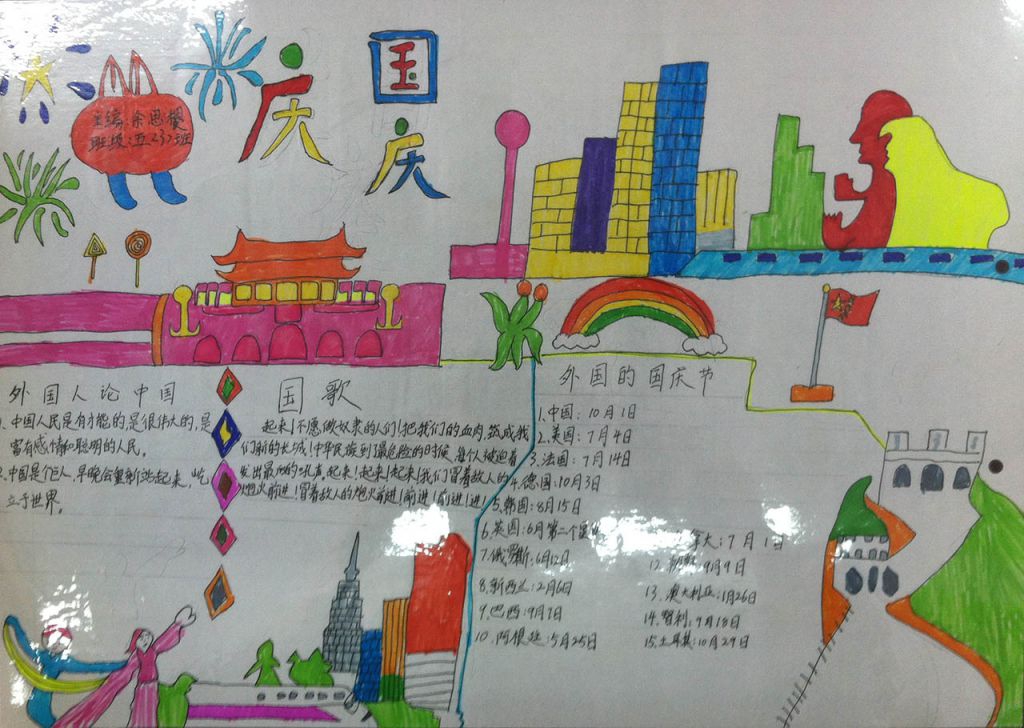 主编:余思樱
班级:五237班
庆
国
庆
外国人论中国
1.中国人民是有才能的,是很伟大的,是
富有感情和聪明的人民。
2.中国是个巨人,早晚会重新站起来,屹
立于世界。
国歌
起来!不愿做奴隶的人们!把我们的血肉,筑成我
们新的长城!中华民族到了最危险的时候,每个人被迫着
发出最后的吼声。起来!起来!起来!我们冒着敌人的
炮火前进!冒着敌人的炮火前进!前进!前进!进!
外国的国庆节
1.中国:10月1日
2.美国:7月4日
3.法国:7月14日
4.德国:10月3日
5.韩国:8月15日
6.英国:6月第二个星
7.俄罗斯:6月12日
8.新西兰:2月6日
9.巴西:9月7日
10.阿根廷:5月25日
大:7月1日
12. 9月9日
13.澳大利亚:1月26日
14.智利:9月18日
15.土耳其:10月29日